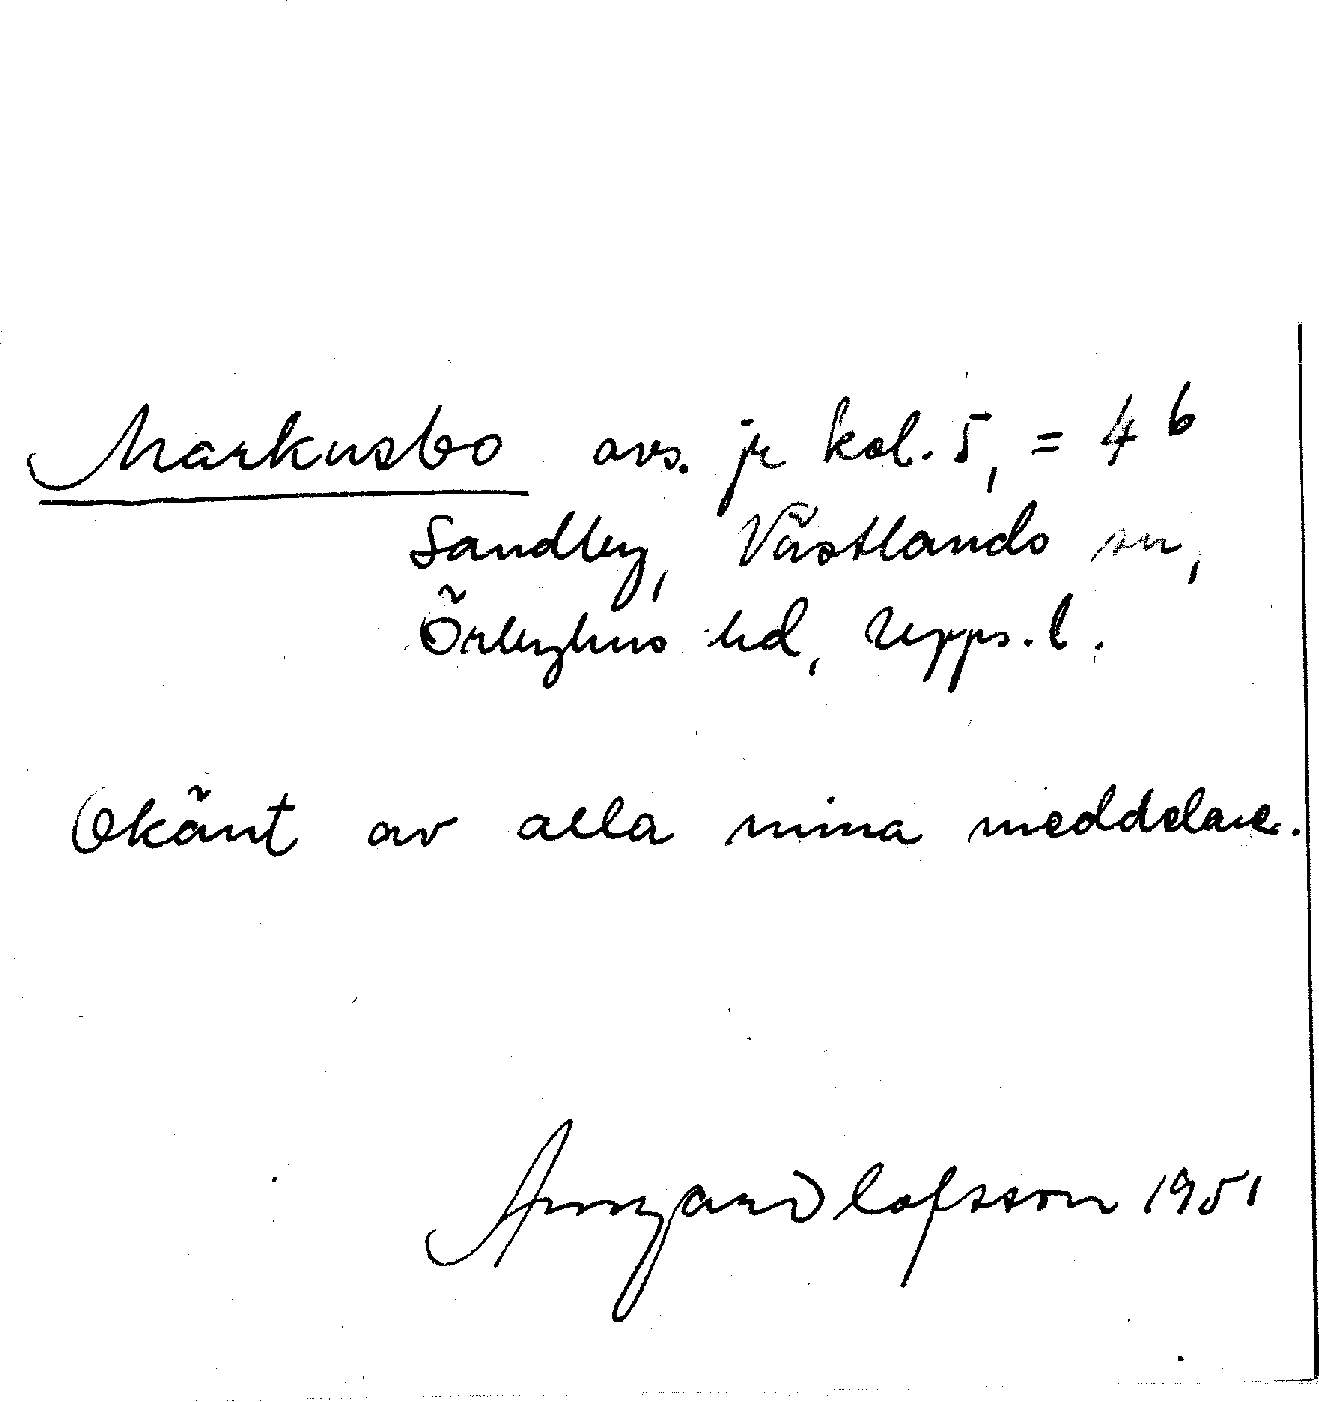 Markusbo avs. jr kol. 5, = 4b
Sandby, Västlands sn,
Örbyhus hd, Upps. l.
Okänt av alla mina meddelare.
Olofsson 1951